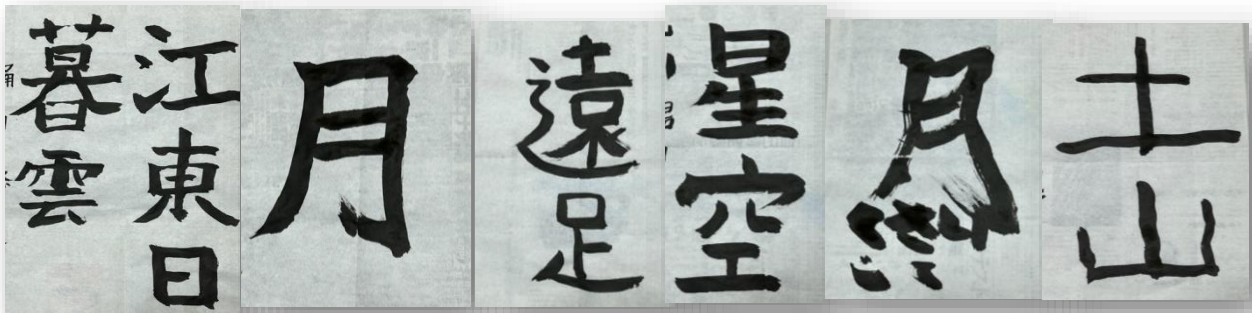 江東日
暮雲
月
遠足
星空
月
土山